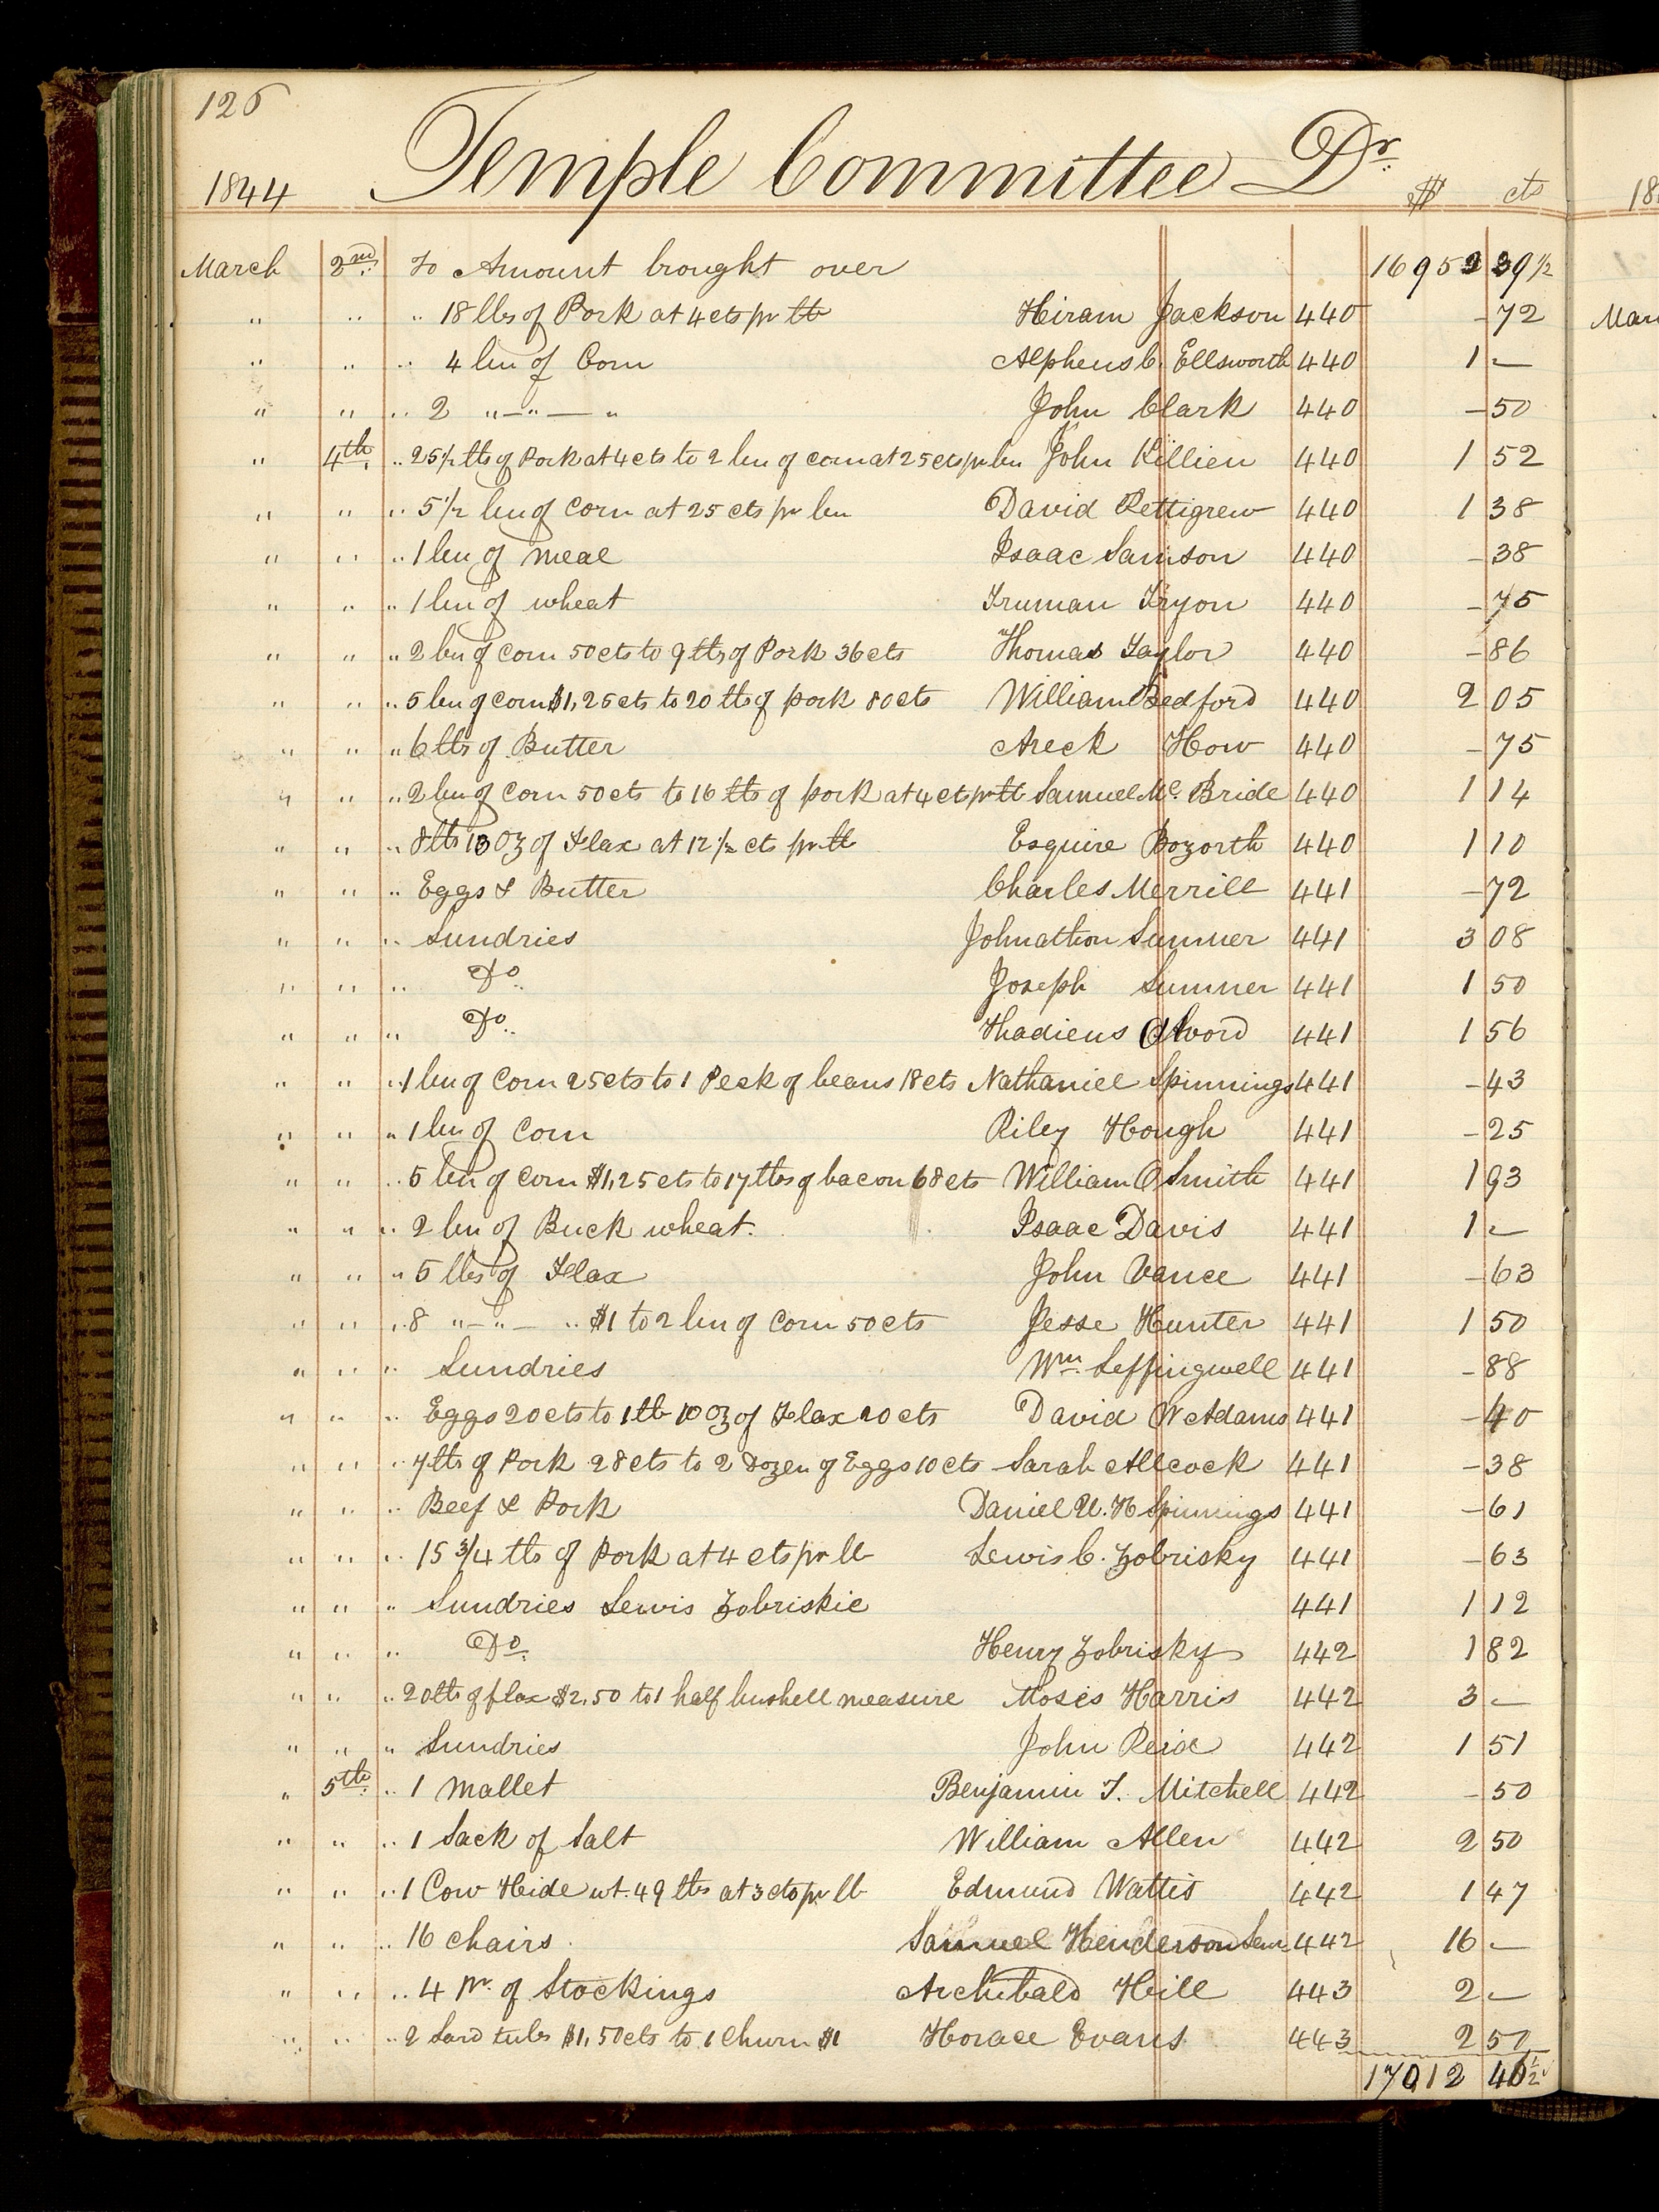 126
1844 Temple Committee Dr. $ cts
March 2nd. To Amount brought over 16952 39 1/2
" " " 18 lbs of Pork at 4 cts pr lb Hiram Jackson 440 - 72
" " " 4 bu of Corn Alpheus C. Ellsworth 440 1 -
" " " 2 " - " - " John Clark 440 - 50
" 4th. " 25 1/2 lbs of Pork at 4 cts to 2 bu of corn at 25 cts pr bu John Killien 440 1 52
" " " 5 1/2 bu of Corn at 25 cts pr bu David Pettigrew 440 1 38
" " " 1 bu of Meal Isaac Samson 440 - 38
" " " 1 bu of wheat Truman Tryon 440 - 75
" " " 2 bu of Corn 50 cts to 9 lbs of Pork 36 cts Thomas Taylor 440 - 86
" " " 5 bu of corn $1,25 cts to 20 lbs of pork 80 cts William Bedford 440 2 05
" " " 6 lbs of Butter Areck How 440 - 75
" " " 2 bu of Corn 50 cts to 16 lbs of pork at 4 cts pr lb Samuel Mc. Bride 440 1 14
" " " 8 lbs 13 Oz of Flax at 12 1/2 cts pr lb Esquire Bozorth 440 1 10
" " " Eggs & Butter Charles Merrill 441 - 72
" " " Sundries Johnathon Sumner 441 3 08
" " " Do. Joseph Sumner 441 1 50
" " " Do. Thadieus Alvord 441 1 56
" " " 1 bu of Corn 25 cts to 1 Peck of beans 18 cts Nathaniel Spinnings 441 - 43
" " " 1 bu of Corn Riley Hough 441 - 25
" " " 5 bu of Corn $1,25 cts to 17 lbs of bacon 68 cts William O Smith 441 1 93
" " " 2 bu of Buck wheat. Isaac Davis 441 1 -
" " " 5 lbs of Flax John Vance 441 - 63
" " " 8 " - " - " $1 to 2 bu of Corn 50 cts Jesse Hunter 441 1 50
" " " Sundries Wm. Leffingwell 441 - 88
" " " Eggs 20 cts to 1 lb 10 Oz of Flax 20 cts David W Adams 441 - 40
" " " 7 lbs of Pork 28 cts to 2 Dozen of Eggs 10 cts Sarah Allcock 441 - 38
" " " Beef & Pork Daniel U. H Spinnings 441 - 61
" " " 15 3/4 lbs of Pork at 4 cts pr lb Lewis C. Zobrisky 441 - 63
" " " Sundries Lewis Zobriskie 441 1 12
" " " Do. Henry Zobrisky 442 1 82
" " " 20 lbs of flax $2,50 to 1 half bushell measure Moses Harris 442 3 -
" " " Sundries John Reid 442 1 51
" 5th. " 1 Mallet Benjamin T. Mitchell 442 - 50
" " " 1 Sack of Salt William Allen 442 2 50
" " " 1 Cow Hide wt. 49 lbs at 3 cts pr lb Edmund Wattis 442 1 47
" " " 16 chairs Samuel Henderson Senr 442 16 -
" " " 4 Pr. of Stockings Archibald Hill 443 2 -
" " " 2 Lard tubs $1,50 cts to 1 Churn $1 Horace Evans 443 2 50
17012 46 1/2